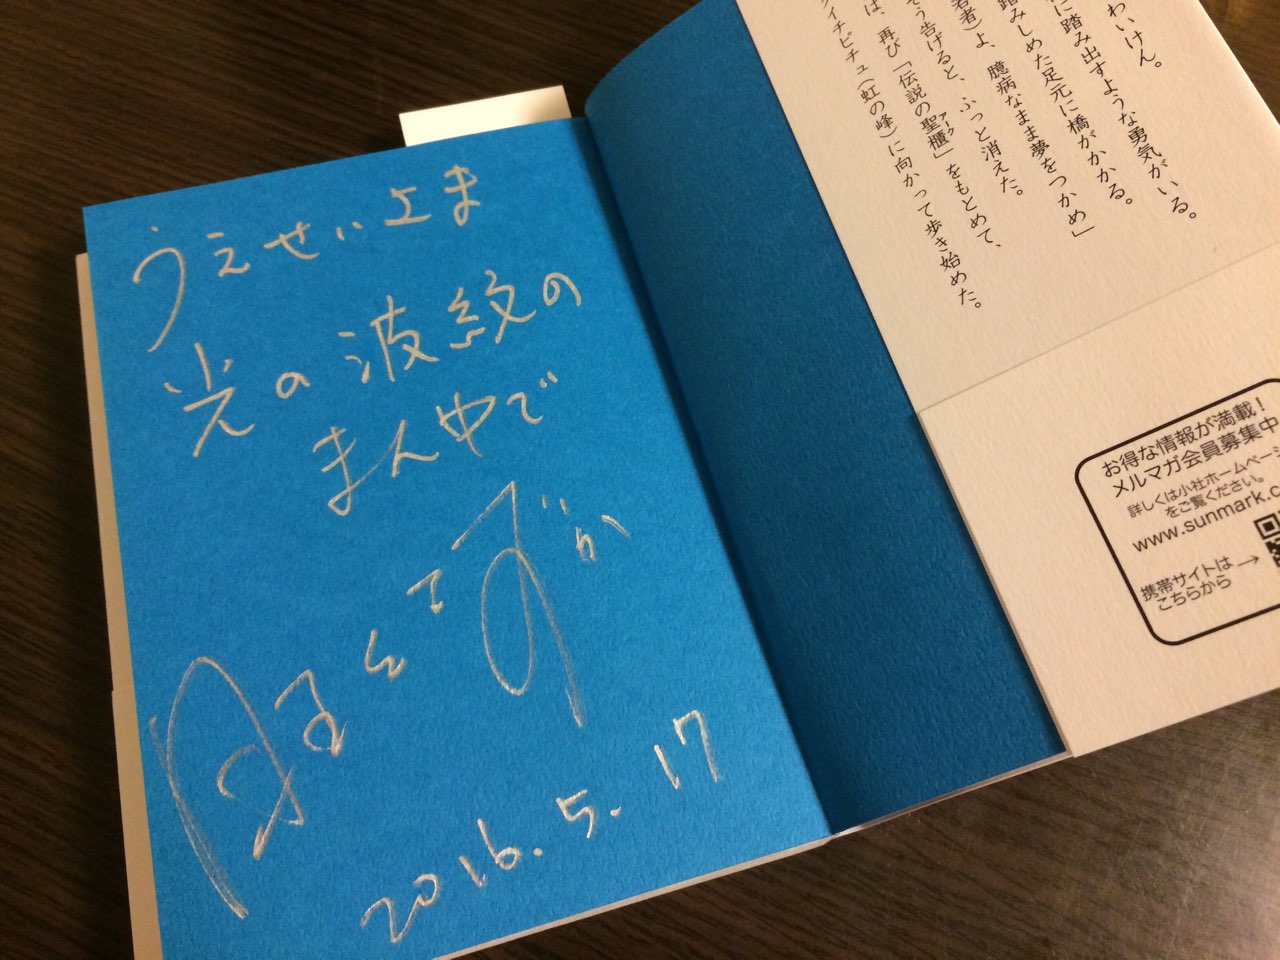 うえせいさま
光の波紋の
まん中で
2016.5.17
わいけん。
に踏み出すような勇気がいる。
踏みしめた足元に橋がかかる。
者）よ、臆病なまま夢をつかめ」
そう告げると、ふっと消えた。
は、再び「伝説の聖櫃」をもとめて、
アーク
イチピチュ（虹の峰）に向かって歩き始めた。
お得な情報が満載！
メルマガ会員募集中
詳しくは小社ホームページ
をご覧ください。
www.sunmark.c
携帯サイトは
こちらから
→